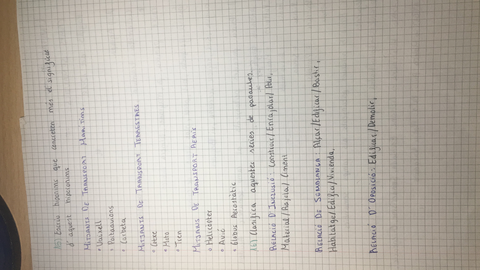 15) Escriu hipònims que concreten més el significat
d'aquests hiperònims.
MITJANS DE TRANSPORT MARÍTIMS
• Vaixell
• Barca
MITJANS DE TRANSPORT TERRESTRES
• Cotxe
• Moto
• Tren
MITJANS DE TRANSPORT AERIS
• Helicòpter
• Avió
• Globus Aerostàtic
16) Classifica aquestes sèries de paraules
RELACIÓ D'INCLUSIÓ: Construir/
Material/Rajola/Ciment
RELACIÓ DE SEMBLANÇA: Alçar/Edificar/Bastir,
Habitatge/Edifici/Vivenda,
RELACIÓ D'OPOSICIÓ: Edificar/Demolir,